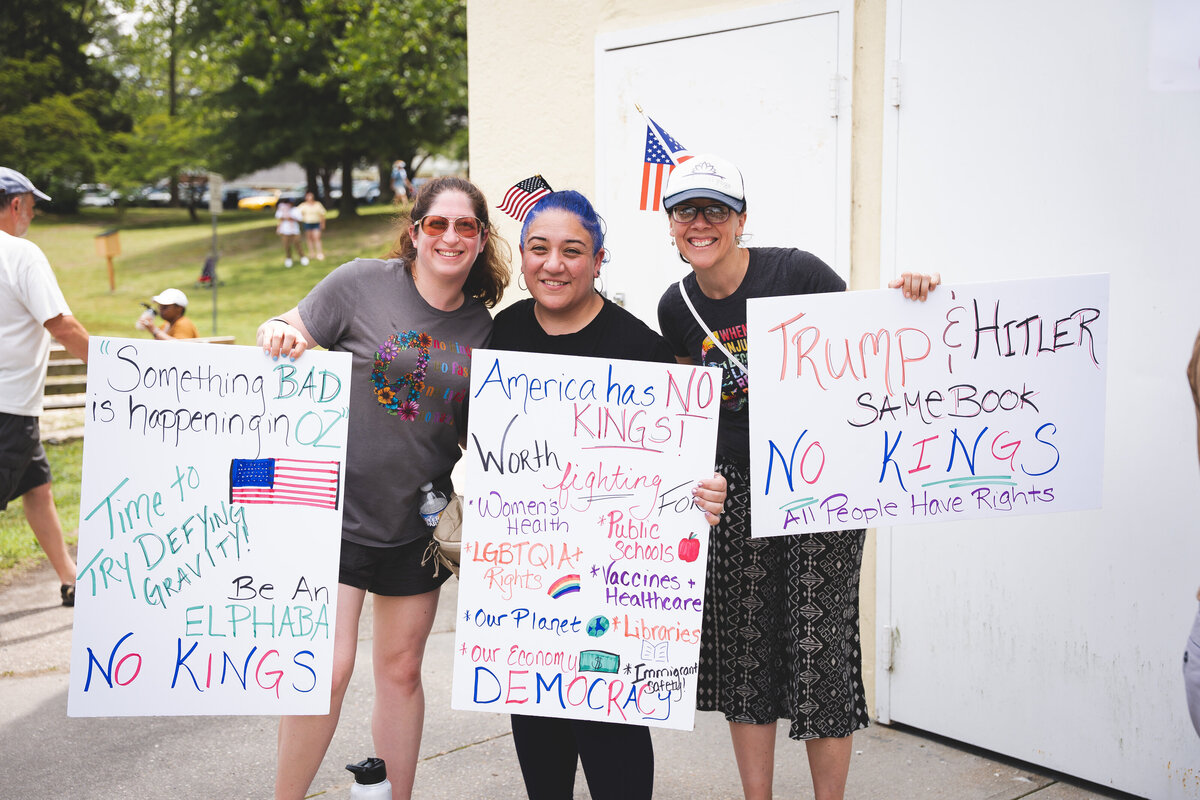 "Something BAD
is happening in OZ"
Time to
Try Defying
Gravity!
Be An
ELPHABA
No Kings
America has NO
KINGS!
Worth
fighting
For
*Women's
Health
*Public
Schools
*LGBTQIA+
Rights
*Vaccines +
Healthcare
*Our Planet
*Libraries
*Our Economy
*Immigrant
Safety!
DEMOCRACY
Trump & Hitler
SAME BOOK
No Kings
All People Have Rights
nothing
WHEN
INJU